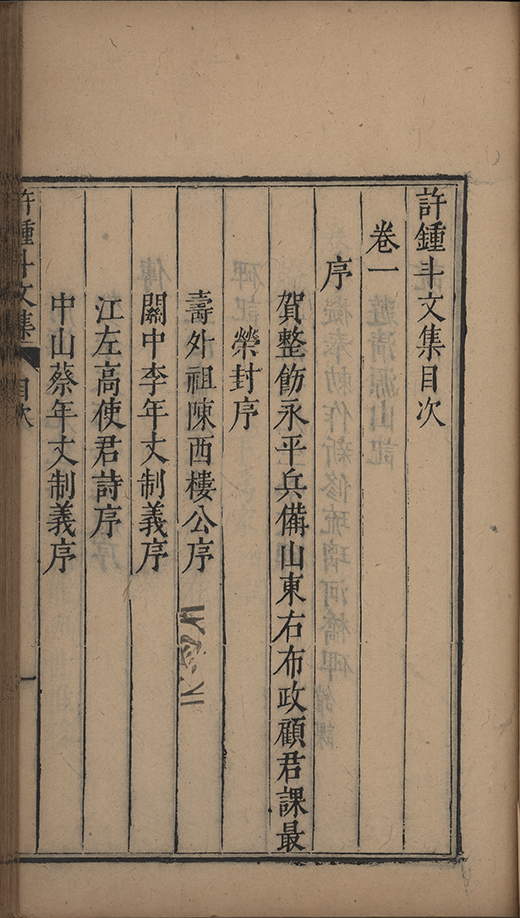 許鍾斗文集目次
卷一
序
賀整飭永平兵備山東右布政顧君課最
榮封序
壽外祖陳西樓公序
關中李年丈制義序
江左高使君詩序
中山蔡年丈制義序
許鍾斗文集 目次 一